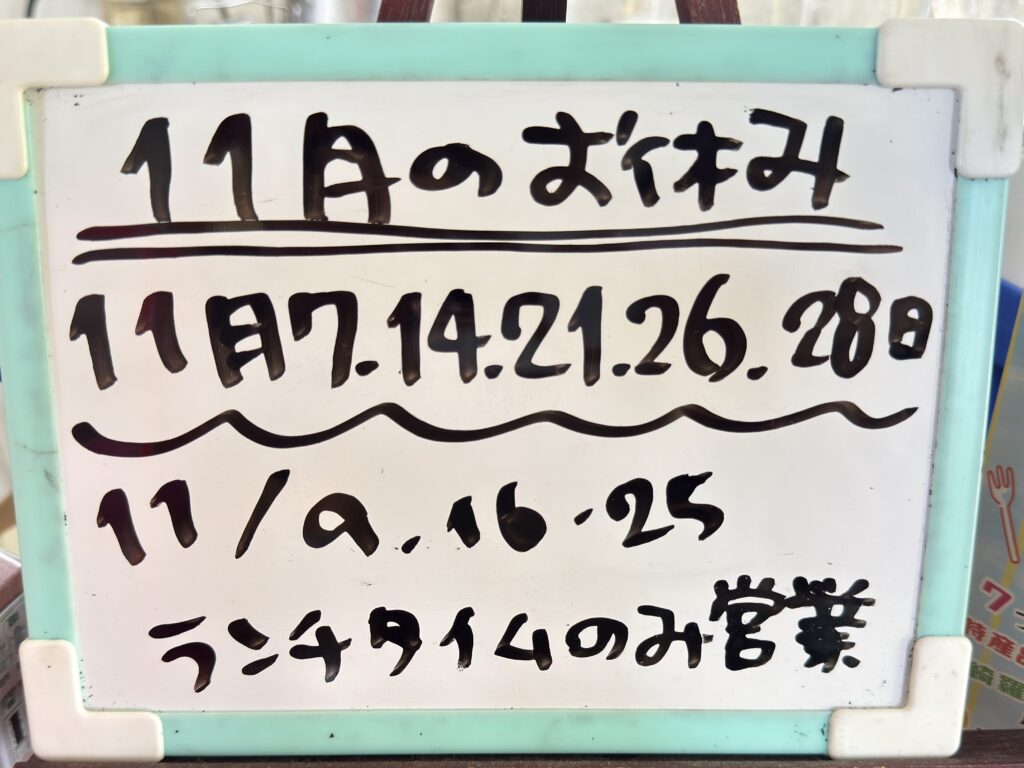 11月のお休み
11月7.14.21.26.28日
11/9.16.25
ランチタイムのみ営業
ワ
特産